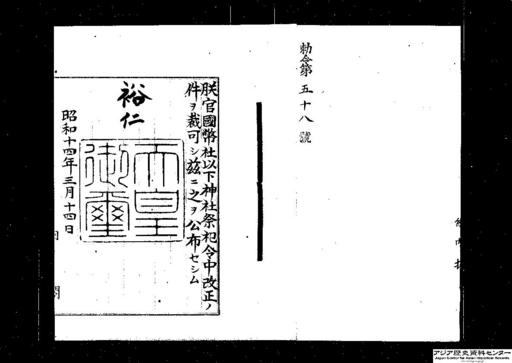 勅令第五十八號
朕官國幣社以下神社祭祀令中改正ノ
件ヲ裁可シ茲ニ之ヲ公布セシム
裕仁
天皇
御璽
昭和十四年三月十四日
内閣
アジア歴史資料センター
Japan Center for Asian Historical Records